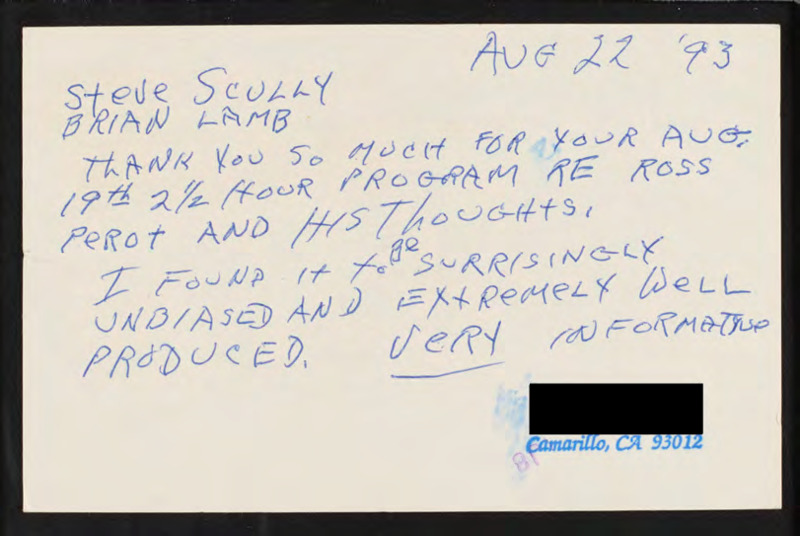 AUG 22 '93
Steve SCULLY
BRIAN LAMB
THANK YOU SO MUCH FOR YOUR AUG.
19th 2½ HOUR PROGRAM RE ROSS
PEROT AND HIS THOUGHTS.
I FOUND IT TO BE SURRISINGLY
UNBIASED AND EXTREMELY WELL
PRODUCED. VERY INFORMATIVE
Camarillo, CA 93012